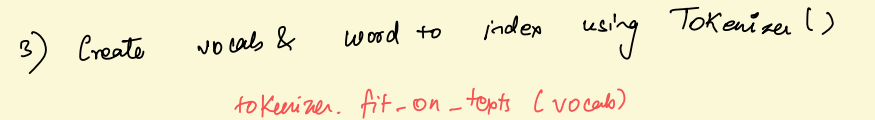 3) Create vocab & word to index using Tokenizer ( )
tokenizer. fit_on_texts (vocab)